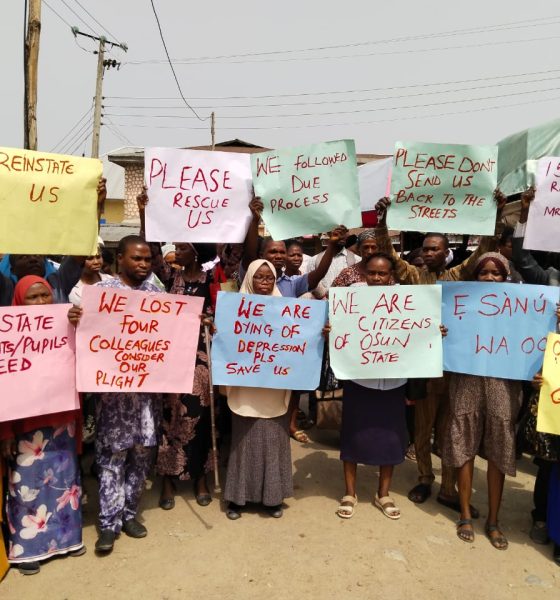 REINSTATE
US
PLEASE
RESCUE
US
WE FOLLOWED
DUE
PROCESS
PLEASE DONT
SEND US
BACK TO THE
STREETS
STATE
/PUPILS
WE LOST
FOUR
COLLEAGUES
CONSIDER
OUR
PLIGHT
WE ARE
DYING OF
DEPRESSION
PLS
SAVE US
WE ARE
CITIZENS
OF OSUN
STATE
Ẹ SÀNÚ
WA